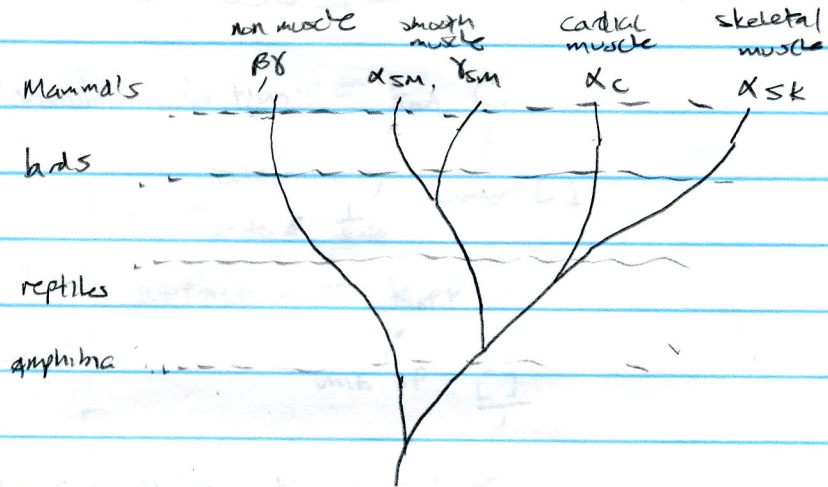 non muscle smooth muscle cardial muscle skeletal muscle
βγ α SM, γ SM α C α SK
Mammals
birds
reptiles
amphibia